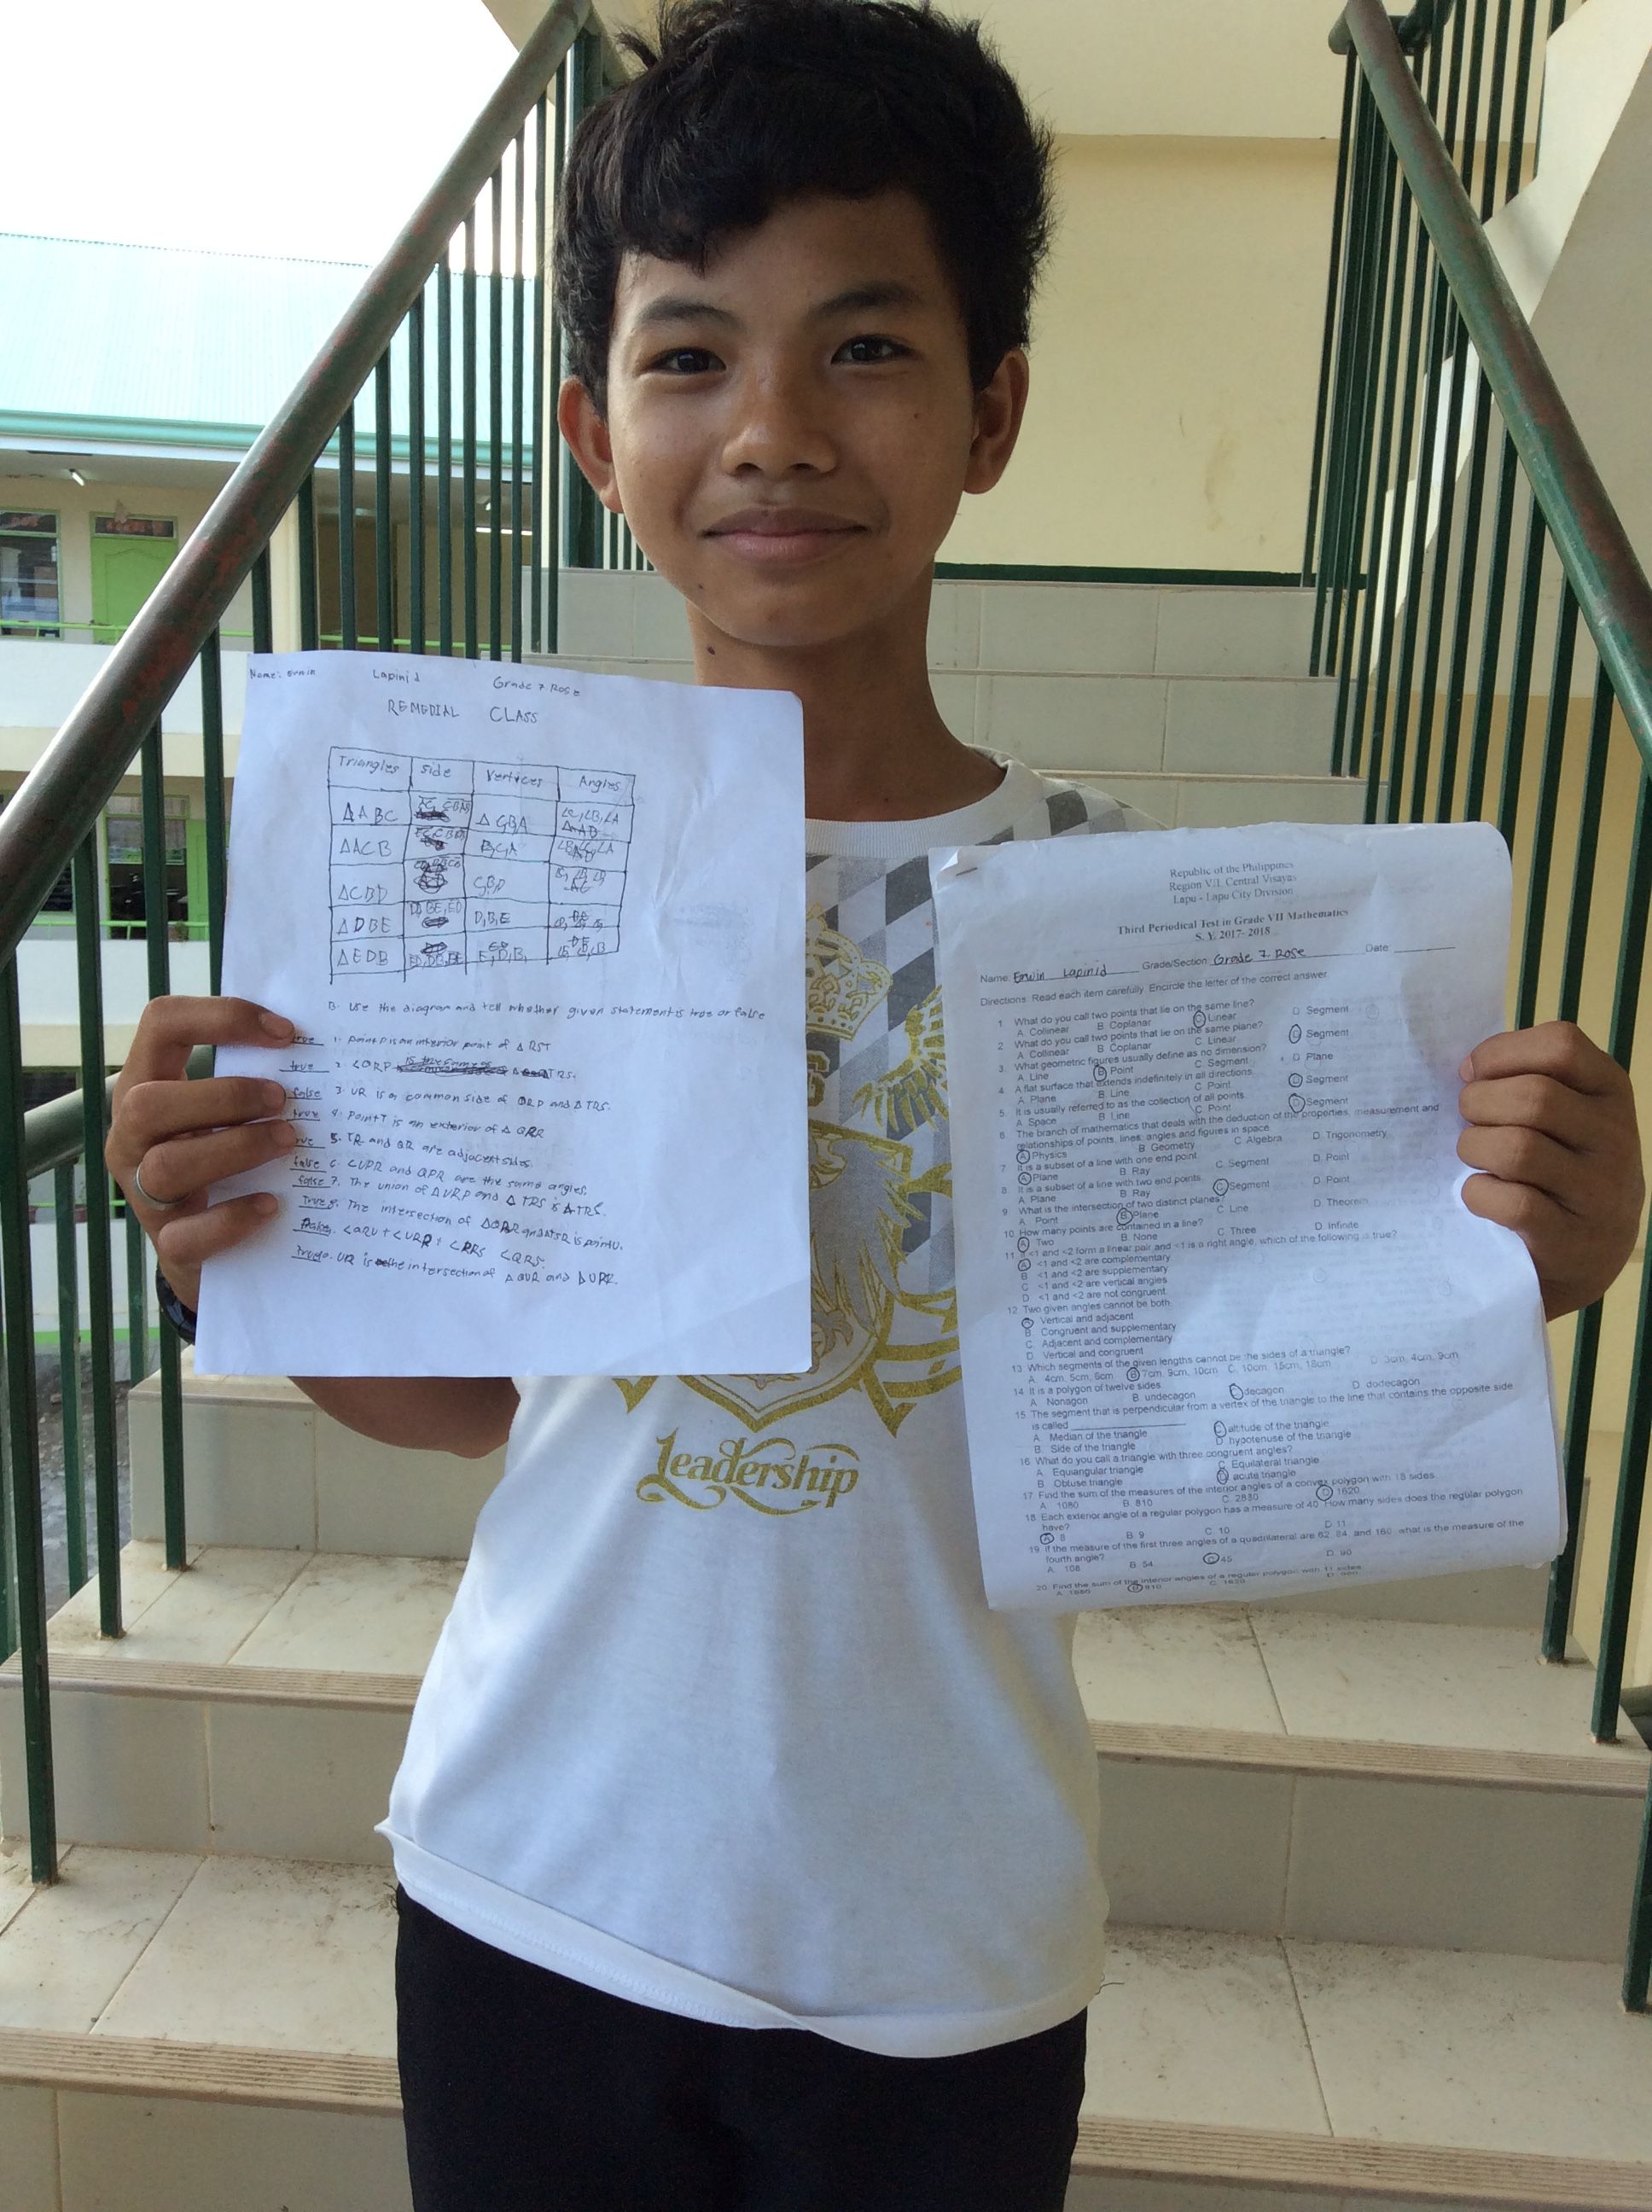 Name: Erwin Lapinid Grade 7. Rose
REMEDIAL CLASS
Triangles side Vertices Angles
△ABC △ C,B,A ∠C,∠B,∠A
△ACB B,C,A
△CBD C,B,D
△DBE D,B,E
△EDB ED,DB,BE E,D,B,
B. Use the diagram and tell whether given statement is true or false
true 1. point P is an interior point of △RST
true 2. <QRP is the same as TRS.
false 3. UR is a common side of QRP and △TRS.
true 4. Point T is an exterior of △
5. TR and QR are adjacent sides.
false 6. <UPR and QPR are the same angles.
false 7. The union of △URP and △TRS is △TRS.
True 8. The intersection of and is point U.
<QRU + <URP + <QRS.
UR is the intersection of △QUR and △URP.
Republic of the Philippines
Region VII, Central Visayas
Lapu - Lapu City Division
Third Periodical Test in Grade VII Mathematics
S. Y. 2017- 2018
Name: Erwin Lapinid Grade/Section: Grade 7. Rose Date
Directions: Read each item carefully. Encircle the letter of the correct answer.
1. What do you call two points that lie on the same line?
A. Collinear B. Coplanar C. Linear D. Segment
2. What do you call two points that lie on the same plane?
A. Collinear B. Coplanar C. Linear D. Segment
3. What geometric figures usually define as no dimension?
A. Line B. Point C. Segment D. Plane
4. A flat surface that extends indefinitely in all directions.
A. Plane B. Line C. Point D. Segment
5. It is usually referred to as the collection of all points.
A. Space B. Line C. Point D. Segment
6. The branch of mathematics that deals with the deduction of the properties, measurement and
relationships of points, lines, angles and figures in space.
A. Physics B. Geometry C. Algebra D. Trigonometry
7. It is a subset of a line with one end point.
A. Plane B. Ray C. Segment D. Point
8. It is a subset of a line with two end points.
A. Plane B. Ray C. Segment D. Point
9. What is the intersection of two distinct planes?
A. Point B. Plane C. Line D. Theorem
10. How many points are contained in a line?
A. Two B. None C. Three D. Infinite
11. If <1 and <2 form a linear pair and <1 is a right angle, which of the following is true?
A. <1 and <2 are complementary
B. <1 and <2 are supplementary
C. <1 and <2 are vertical angles
D. <1 and <2 are not congruent
12. Two given angles cannot be both
A. Vertical and adjacent
B. Congruent and supplementary
C. Adjacent and complementary
D. Vertical and congruent
13. Which segments of the given lengths cannot be the sides of a triangle?
A. 4cm, 5cm, 6cm B. 7cm, 9cm, 10cm C. 10cm, 15cm, 18cm D. 3cm, 4cm, 9cm
14. It is a polygon of twelve sides
A. Nonagon B. undecagon C. decagon D. dodecagon
15. The segment that is perpendicular from a vertex of the triangle to the line that contains the opposite side
is called
A. Median of the triangle C. altitude of the triangle
B. Side of the triangle D. hypotenuse of the triangle
16. What do you call a triangle with three congruent angles?
A. Equiangular triangle C. Equilateral triangle
B. Obtuse triangle D. acute triangle
17. Find the sum of the measures of the interior angles of a convex polygon with 18 sides.
A. 1080 B. 810 C. 2830 D. 1620
18. Each exterior angle of a regular polygon has a measure of 40. How many sides does the regular polygon
have?
A. 8 B. 9 C. 10 D. 11
19. If the measure of the first three angles of a quadrilateral are 62, 84, and 160, what is the measure of the
fourth angle?
A. 108 B. 54 C. 45 D. 90
20. Find the sum of the interior angles of a regular polygon with 11 sides
B. 810 C. 1620
Leadership